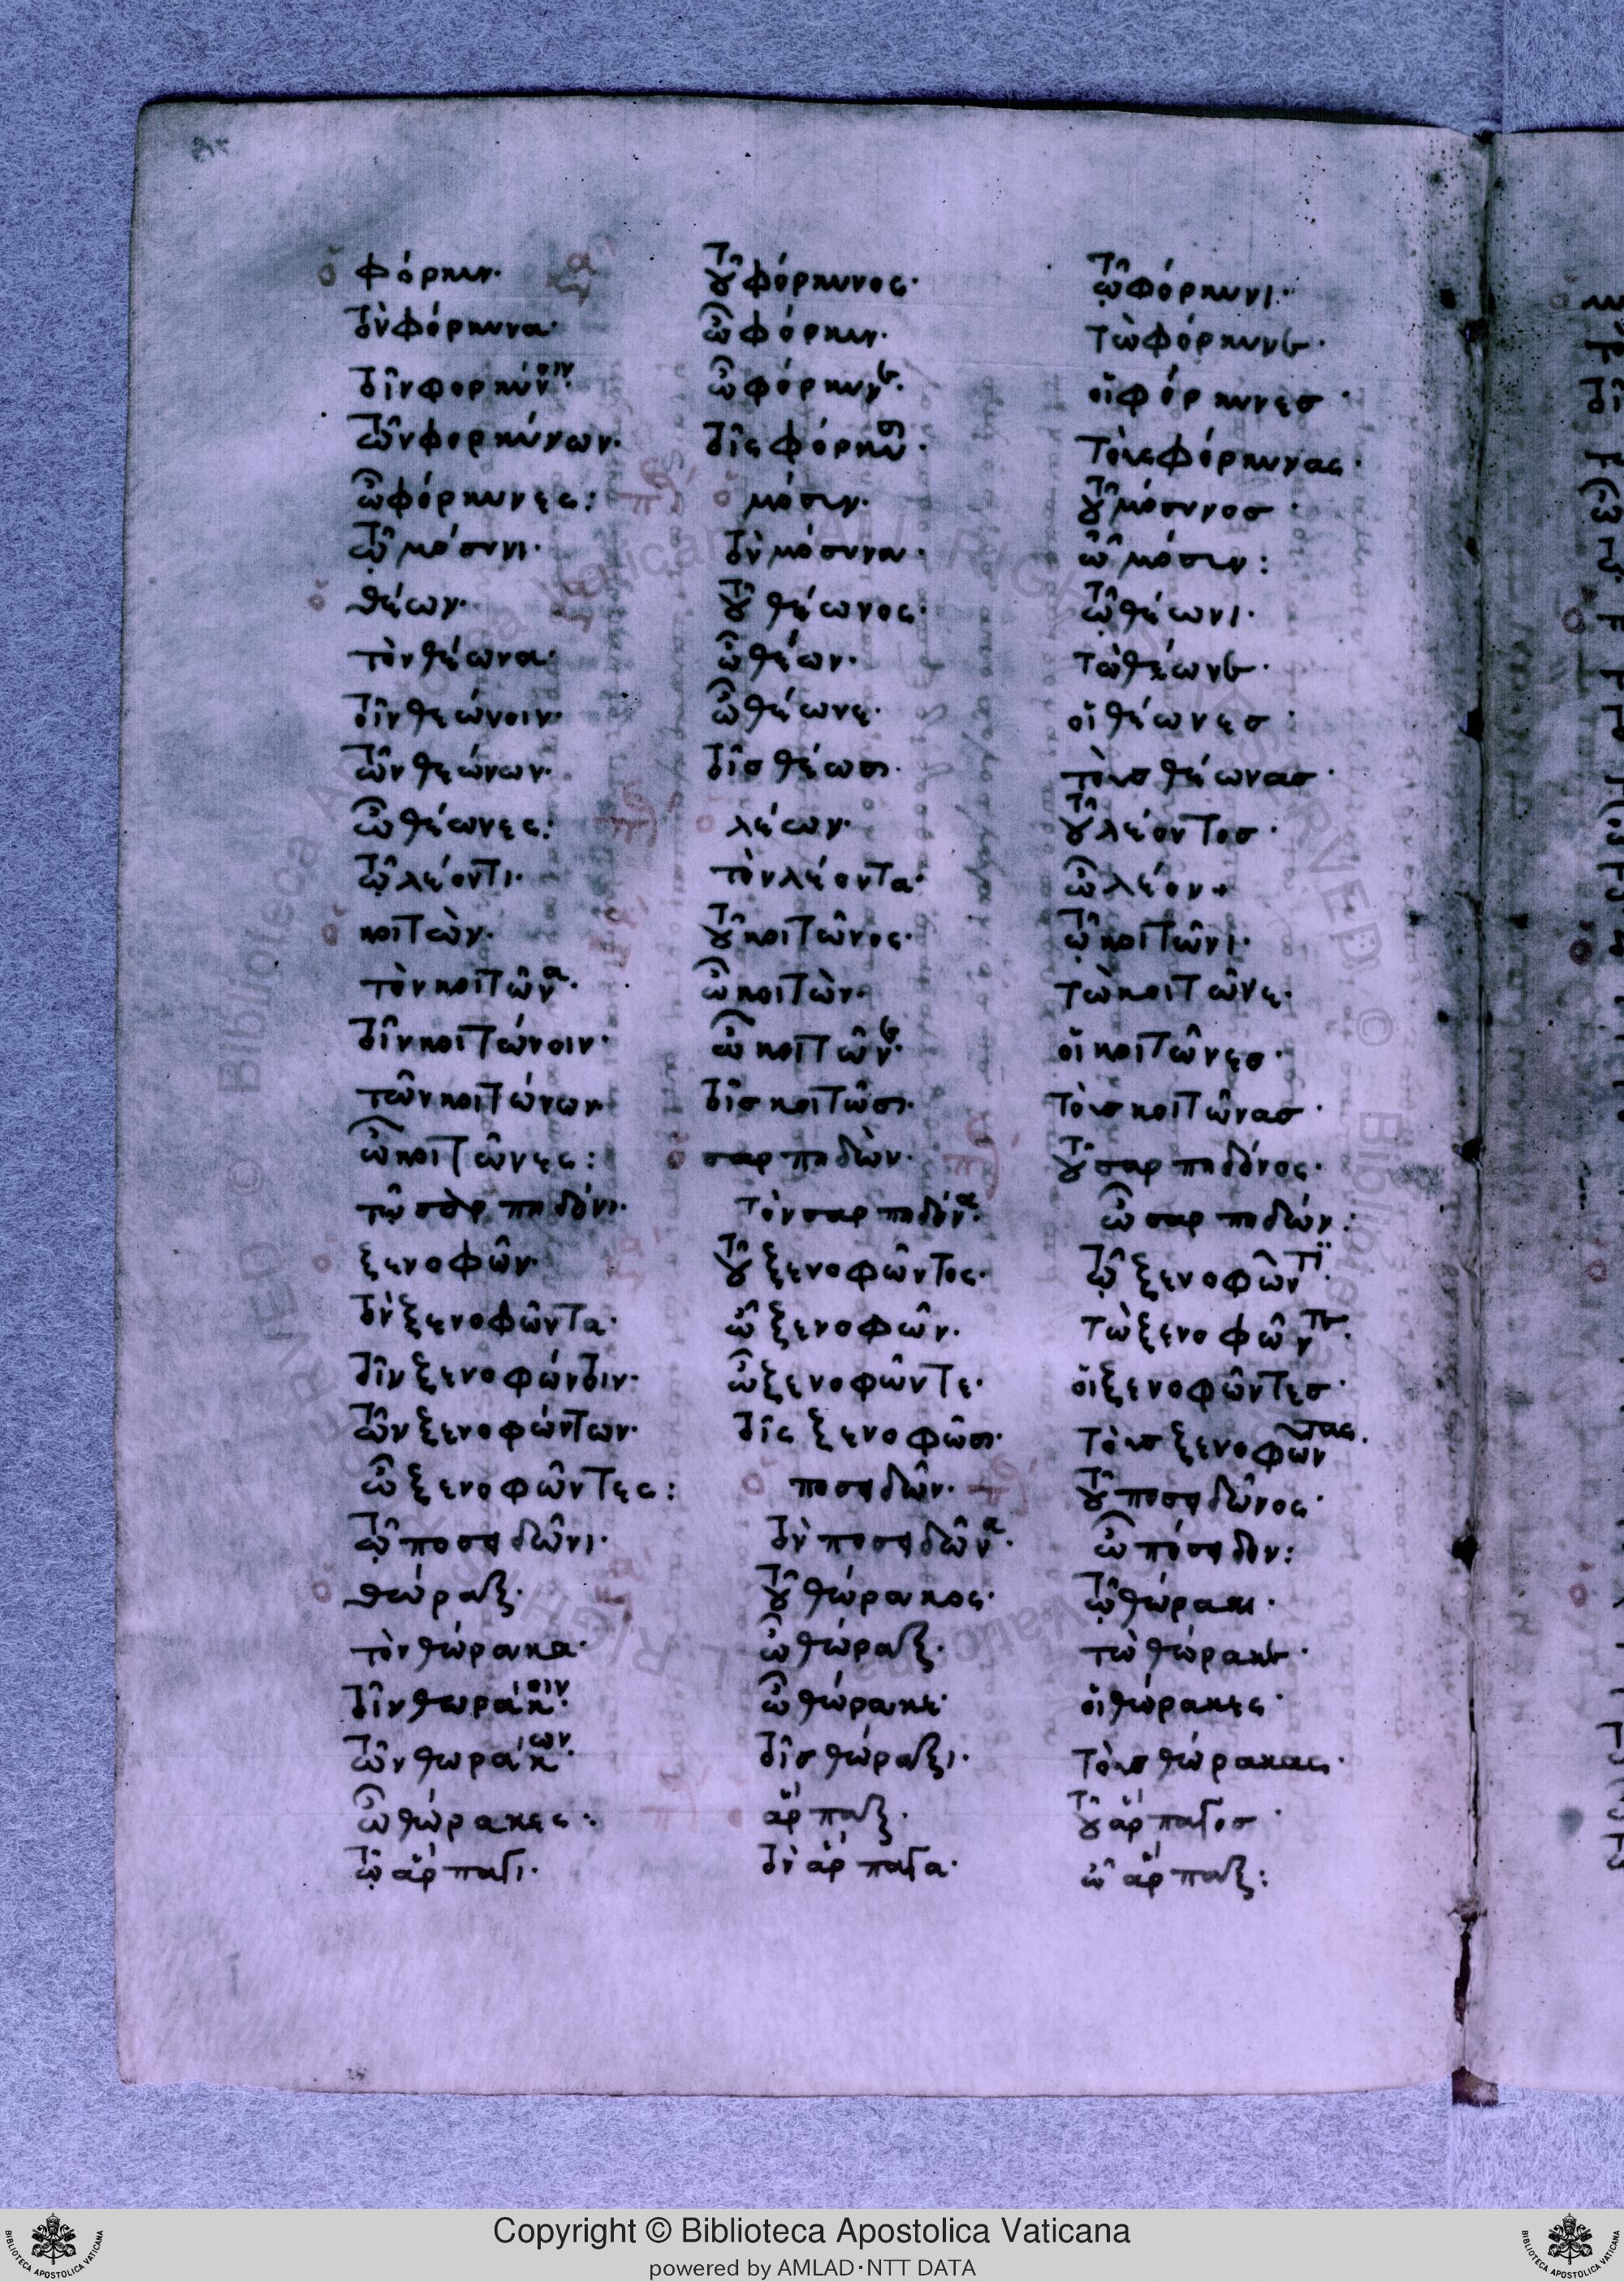 ὁ φόρκυν· κα τοῦ φόρκυνος· τῷ φόρκυνι·
τὸν φόρκυνα· ὦ φόρκυν· τὼ φόρκυνε·
τοῖν φορκύνοιν· ὦ φόρκυνε· οἱ φόρκυνες·
τῶν φορκύνων· τοῖς φόρκυσι· τοὺς φόρκυνας·
ὦ φόρκυνες: ὁ μόσυν· τοῦ μόσυνος·
τῷ μόσυνι· τὸν μόσυνα· ὦ μόσυν:
ὁ θέων· τοῦ θέωνος· τῷ θέωνι·
τὸν θέωνα· ὦ θέων· τὼ θέωνε·
τοῖν θεώνοιν· ὦ θέωνε· οἱ θέωνες·
τῶν θεώνων· τοῖς θέωσι· τοὺς θέωνας·
ὦ θέωνες: ὁ λέων· τοῦ λέοντος·
τῷ λέοντι· τὸν λέοντα· ὦ λέον
ὁ κοιτὼν· τοῦ κοιτῶνος· τῷ κοιτῶνι·
τὸν κοιτῶνα· ὦ κοιτὼν· τὼ κοιτῶνε·
τοῖν κοιτώνοιν· ὦ κοιτῶνε· οἱ κοιτῶνες·
τῶν κοιτώνων· τοῖς κοιτῶσι· τοὺς κοιτῶνας·
ὦ κοιτῶνες: ὁ σαρπηδὼν· τοῦ σαρπηδόνος·
τῷ σαρπηδόνι· τὸν σαρπηδόνα· ὦ σαρπηδών:
ὁ ξενοφῶν· τοῦ ξενοφῶντος· τῷ ξενοφῶντϊ·
τὸν ξενοφῶντα· ὦ ξενοφῶν· τὼ ξενοφῶντε·
τοῖν ξενοφώντοιν· ὦ ξενοφῶντε· οἱ ξενοφῶντες·
τῶν ξενοφώντων· τοῖς ξενοφῶσι· τοὺς ξενοφῶντας·
ὦ ξενοφῶντες: ὁ ποσειδῶν· τοῦ ποσειδῶνος·
τῷ ποσειδῶνι· τὸν ποσειδῶνα· ὦ πόσειδον:
ὁ θώραξ· τοῦ θώρακος· τῷ θώρακι·
τὸν θώρακα· ὦ θώραξ· τὼ θώρακε·
τοῖν θωράκοιν· ὦ θώρακε· οἱ θώρακες·
τῶν θωράκων· τοῖς θώραξι· τοὺς θώρακας·
ὦ θώρακες: ἅρπαξ· τοῦ ἅρπαγος·
τῷ ἅρπαγι· τὸν ἅρπαγα· ὦ ἅρπαξ:
Copyright © Biblioteca Apostolica Vaticana
powered by AMLAD·NTT DATA